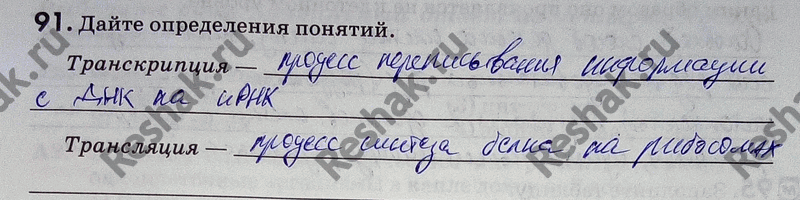 91. Дайте определения понятий.
Транскрипция — процесс переписывания информации
с ДНК на иРНК
Трансляция — процесс синтеза белка на рибосомах
Reshak.ru
Reshak.ru
Reshak.ru
Reshak.ru
Reshak.ru